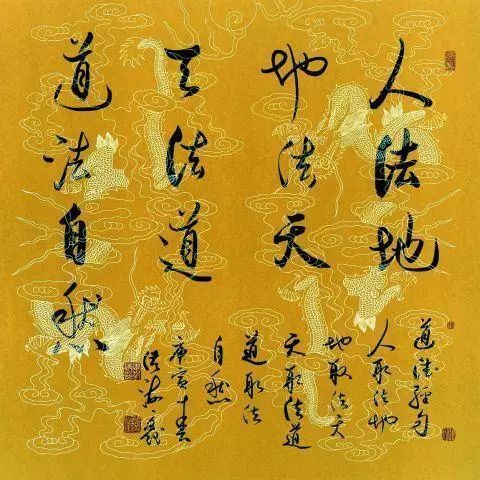 人法地
地法天
天法道
道法自然
道德经句
人取法地
地取法天
天取法道
道取法
自然
庚寅